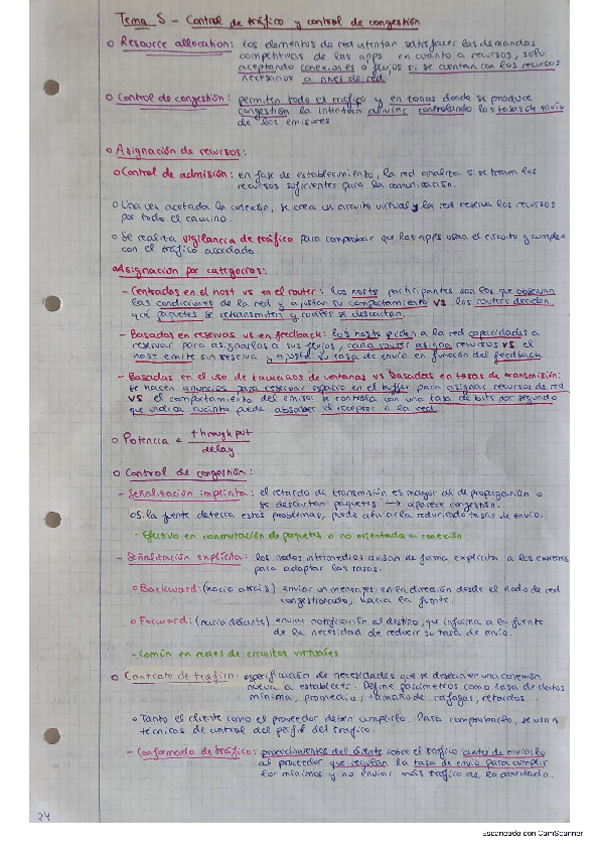 Tema 5 - Control de tráfico y control de congestión
o Resource allocation: los elementos de red intentan satisfacer las demandas
competitivas de las apps en cuanto a recursos, solo
aceptando conexiones o flujos si se cuentan con los recursos
necesarios a nivel de red.
o Control de congestión: permiten todo el tráfico y en zonas donde se produce
congestión la intentan aliviar controlando las tasas de envío
de los emisores
o Asignación de recursos:
o Control de admisión: en fase de establecimiento, la red analiza si se tienen los
recursos suficientes para la comunicación.
o Una vez acetada la conexión, se crea un circuito virtual y la red reserva los recursos
por todo el camino.
o Se realiza vigilancia de tráfico para comprobar que las apps usan el circuito y cumplen
con el tráfico acordado.
Asignación por categorías:
- Centradas en el host vs en el router: los hosts participantes son los que observan
las condiciones de la red y ajustan su comportamiento vs los routers deciden
qué paquetes se retransmiten y cuáles se descartan.
- Basadas en reservas vs en feedback: los hosts piden a la red capacidades a
reservar para asignarlas a sus flujos, cada router asigna recursos vs el
host emite sin reserva y ajusta su tasa de envío en función del feedback
- Basadas en el uso de tamaños de ventanas vs basadas en tasas de transmisión:
se hacen anuncios para reservar espacio en el buffer para asignar recursos de red
vs el comportamiento del emisor se controla con una tasa de bits por segundo
que indica cuánto puede absorber el receptor o la red.
o Potencia = throughput
delay
o Control de congestión:
- Señalización implícita: el retardo de transmisión es mayor al de propagación o
se descartan paquetes → aparece congestión.
o Si la fuente detecta estos problemas, puede aliviarla reduciendo tasas de envío.
- Efectivo en conmutación de paquetes o no orientada a conexión
- Señalización explícita: los nodos intermedios avisan de forma explícita a los extremos
para adaptar las tasas.
o Backward: (hacia atrás) enviar un mensajes en la dirección desde el nodo de red
congestionado, hacia la fuente.
o Forward: (hacia delante) enviar notificación al destino, que informa a la fuente
de la necesidad de reducir su tasa de envío.
- Común en redes de circuitos virtuales
o Contrato de tráfico: especificación de necesidades que se desean en una conexión
nueva a establecer. Define parámetros como tasa de datos
mínima, promedio; tamaño de ráfagas, retardos.
o Tanto el cliente como el proveedor deben cumplirlo. Para comprobarlo, se usan
técnicas de control del perfil del tráfico.
- Conformado de tráfico: procedimientos del cliente sobre el tráfico antes de enviarlo
al proveedor que regulan la tasa de envío para cumplir
los mínimos y no enviar más tráfico de lo acordado.
24
Escaneado con CamScanner